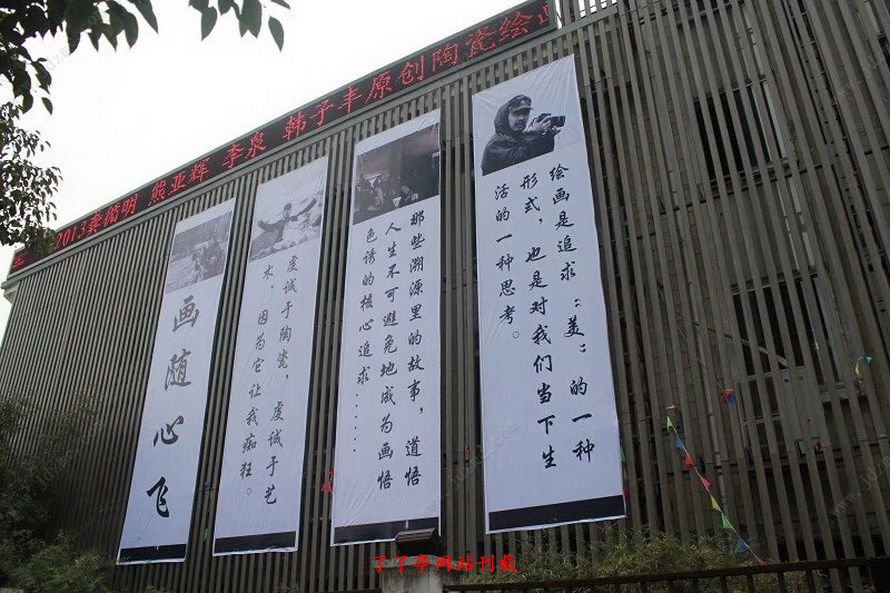 2013龚循明 熊亚辉 李泉 韩子丰原创陶瓷绘
绘画是追求“美”的一种
形式，也是对我们当下生
活的一种思考。
那些溯源里的故事，道悟
人生不可避免地成为画悟
色诱的核心追求......
虔诚于陶瓷，虔诚于艺
术，因为它让我痴狂。
画随心飞
了了亭网站刊载